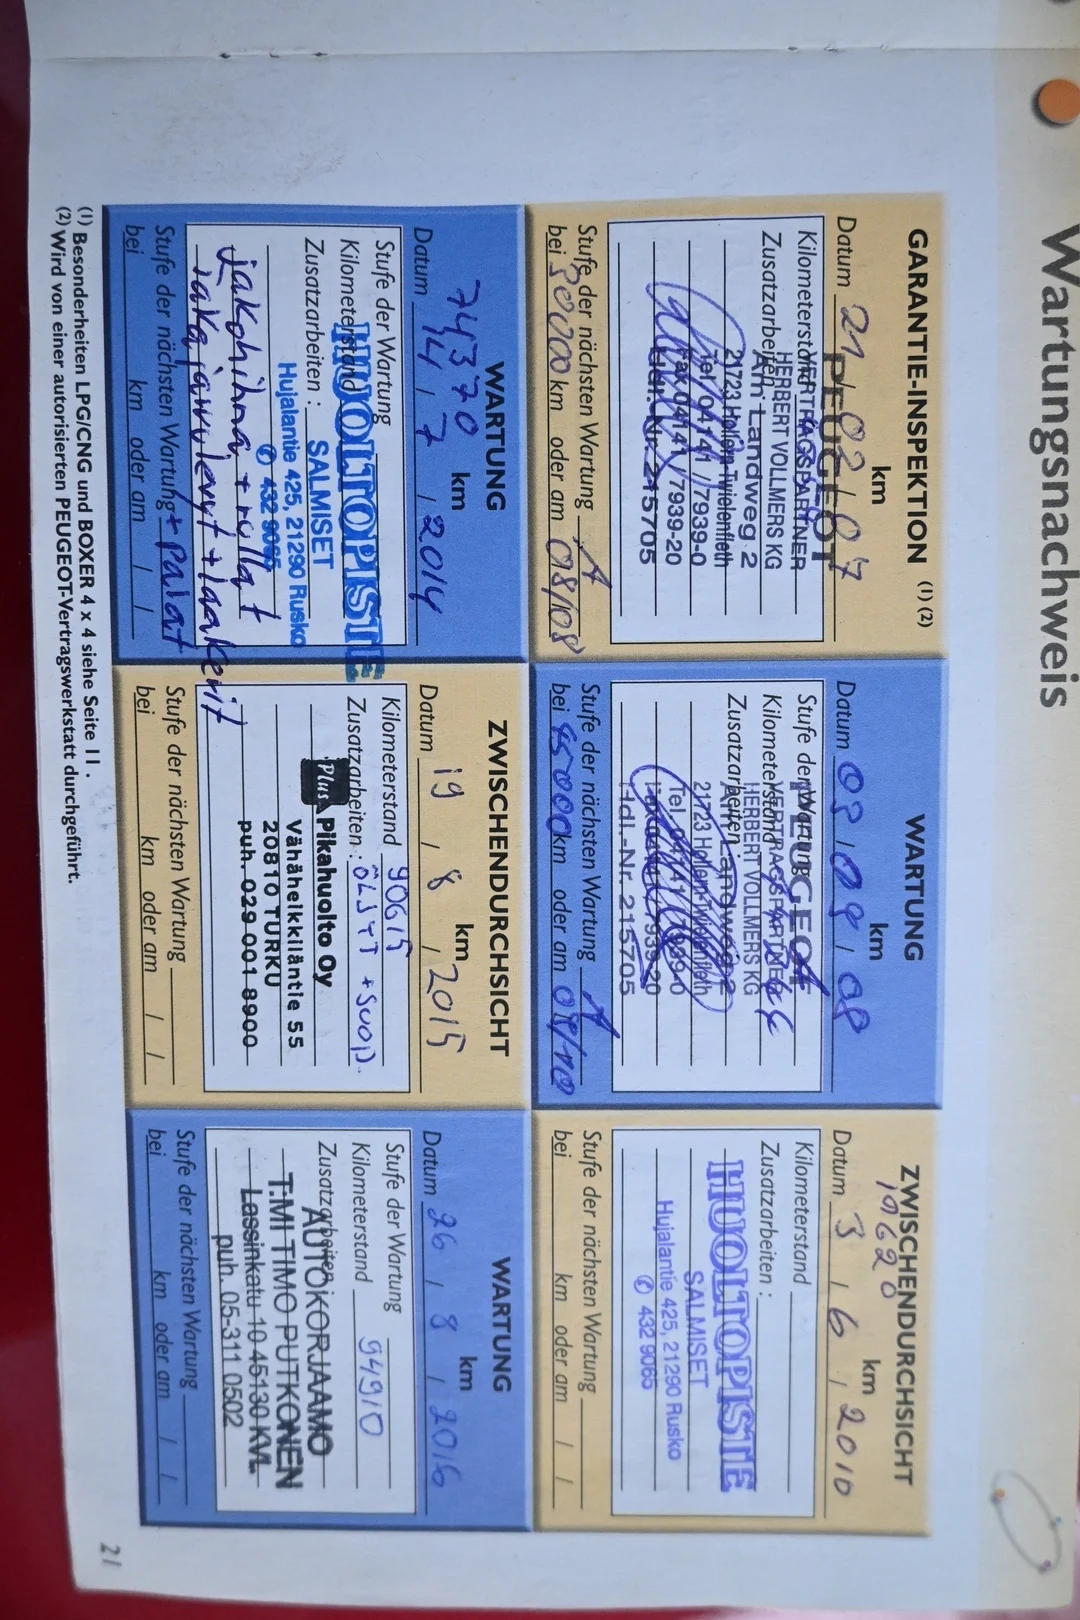 Wartungsnachweis
GARANTIE-INSPEKTION (1) (2)
km
Datum 21/02/07
Kilometerstand
PEUGEOT
VERTRAGSPARTNER
Zusatzarbeiten:
HERBERT VOLLMERS KG
Am Landweg 2
21723 Hollern-Twielenfleth
Tel. 04141 / 7939-0
Fax 04141 / 7939-20
Hdl.-Nr. 215705
Stufe der nächsten Wartung A
bei 30000 km oder am 08/08
WARTUNG
km
Datum 08/09/08
Stufe der Wartung
PEUGEOT
Kilometerstand
VERTRAGSPARTNER
HERBERT VOLLMERS KG
Zusatzarbeiten
Am Landweg 2
21723 Hollern-Twielenfleth
Tel. 04141 / 7939-0
Hdl.-Nr. 215705
Stufe der nächsten Wartung A
bei 45000 km oder am 09/10
ZWISCHENDURCHSICHT
19620 km
Datum 3 / 6 / 2010
Kilometerstand
Zusatzarbeiten :
HUOLTOPISTE
SALMISET
Hujalantie 425, 21290 Rusko
✆ 432 9065
Stufe der nächsten Wartung
bei km oder am / /
WARTUNG
74370 km
Datum 14 / 7 / 2014
Stufe der Wartung
Kilometerstand
HUOLTOPISTE
Zusatzarbeiten :
SALMISET
Hujalantie 425, 21290 Rusko
✆ 432 9065
jakohihna + rullat
+ laakerit
Stufe der nächsten Wartung + palat
bei km oder am / /
ZWISCHENDURCHSICHT
km
Datum 19 / 8 / 2015
Kilometerstand 90615
Zusatzarbeiten : ÖLJYT + SUOD.
Plus Pikahuolto Oy
Vähäheikkiläntie 55
20810 TURKU
puh. 029 001 8900
Stufe der nächsten Wartung
bei km oder am / /
WARTUNG
km
Datum 26 / 8 / 2016
Stufe der Wartung
Kilometerstand 94910
Zusatzarbeiten
AUTOKORJAAMO
T:MI TIMO PUTKONEN
Lassinkatu 10 45130 KVL
puh. 05-311 0502
Stufe der nächsten Wartung
bei km oder am / /
(1) Besonderheiten LPG/CNG und BOXER 4 x 4 siehe Seite 11.
(2) Wird von einer autorisierten PEUGEOT-Vertragswerkstatt durchgeführt.
21